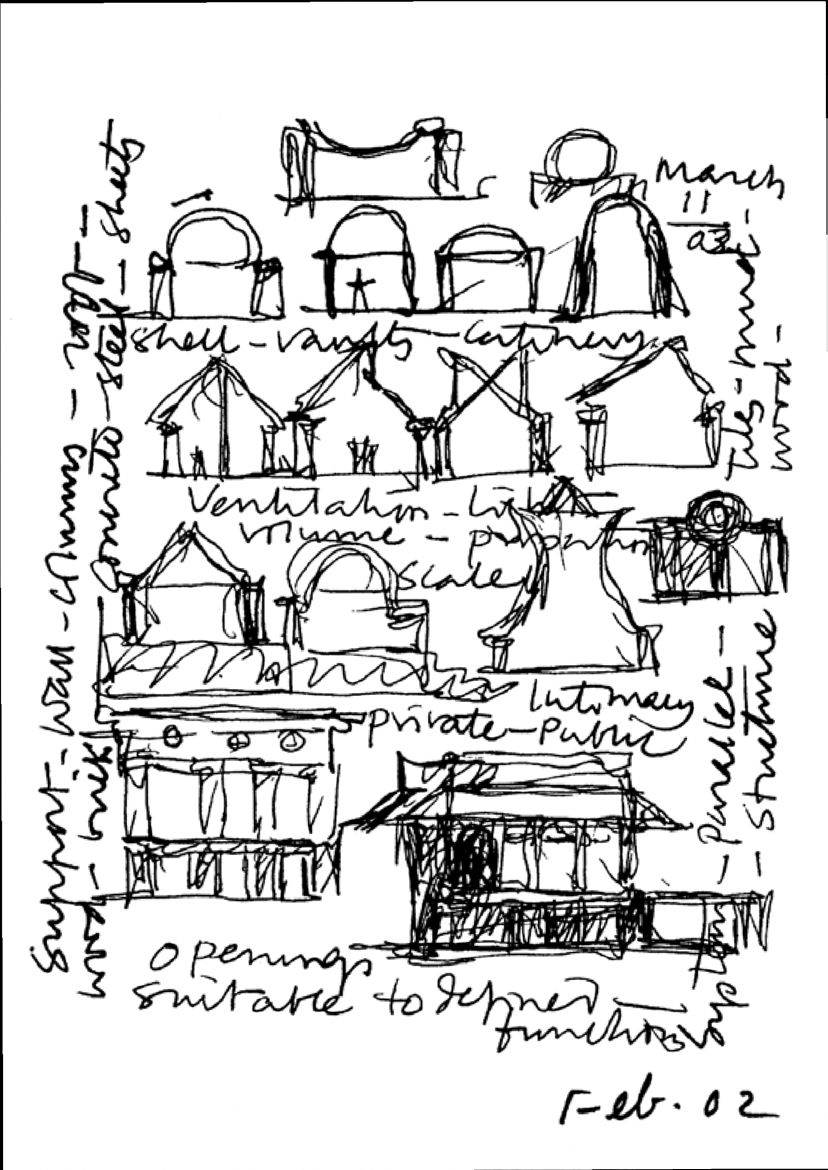 March
11
03
shell-vaults-catinary
Ventilation-light
volume - proportion
scale
Intimacy
private-Public
Openings
suitable to defined
functions
Support-Wall-columns-roof-
wood-brick
concrete-steel-sheets
tiles-mud-
wood-
-Parallel-
Structure
systems
Feb. 02